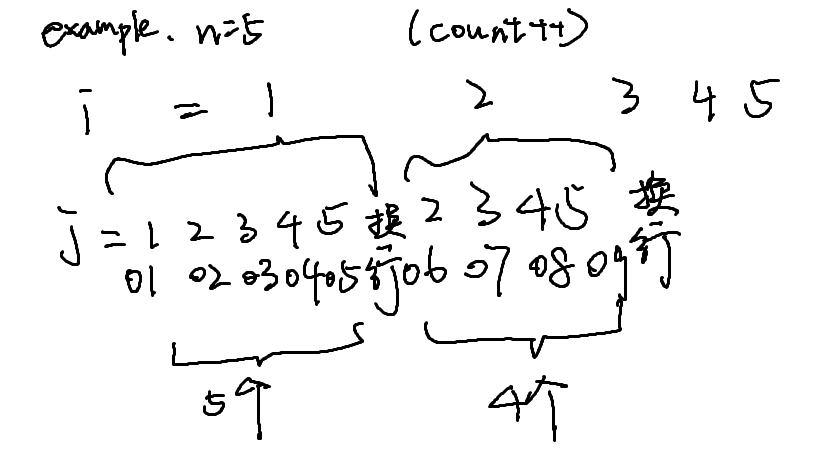 example. n=5 (count++)
i = 1 2 3 4 5
j = 1 2 3 4 5 换行 2 3 4 5 换行
01 02 03 04 05 06 07 08 09
5个 4个